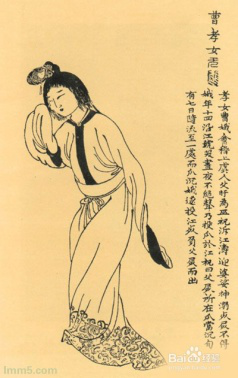 曹孝女
孝女曹娥會稽上虞人父盱為巫祝泝江濤迎婆娑神溺死屍不得
娥年十四沿江號哭晝夜不絕聲乃投瓜於江祝曰父屍所在瓜當沉旬
有七日隨流至一處而瓜沉娥遂投江死負父屍而出
lmm5.com
Baidu百科